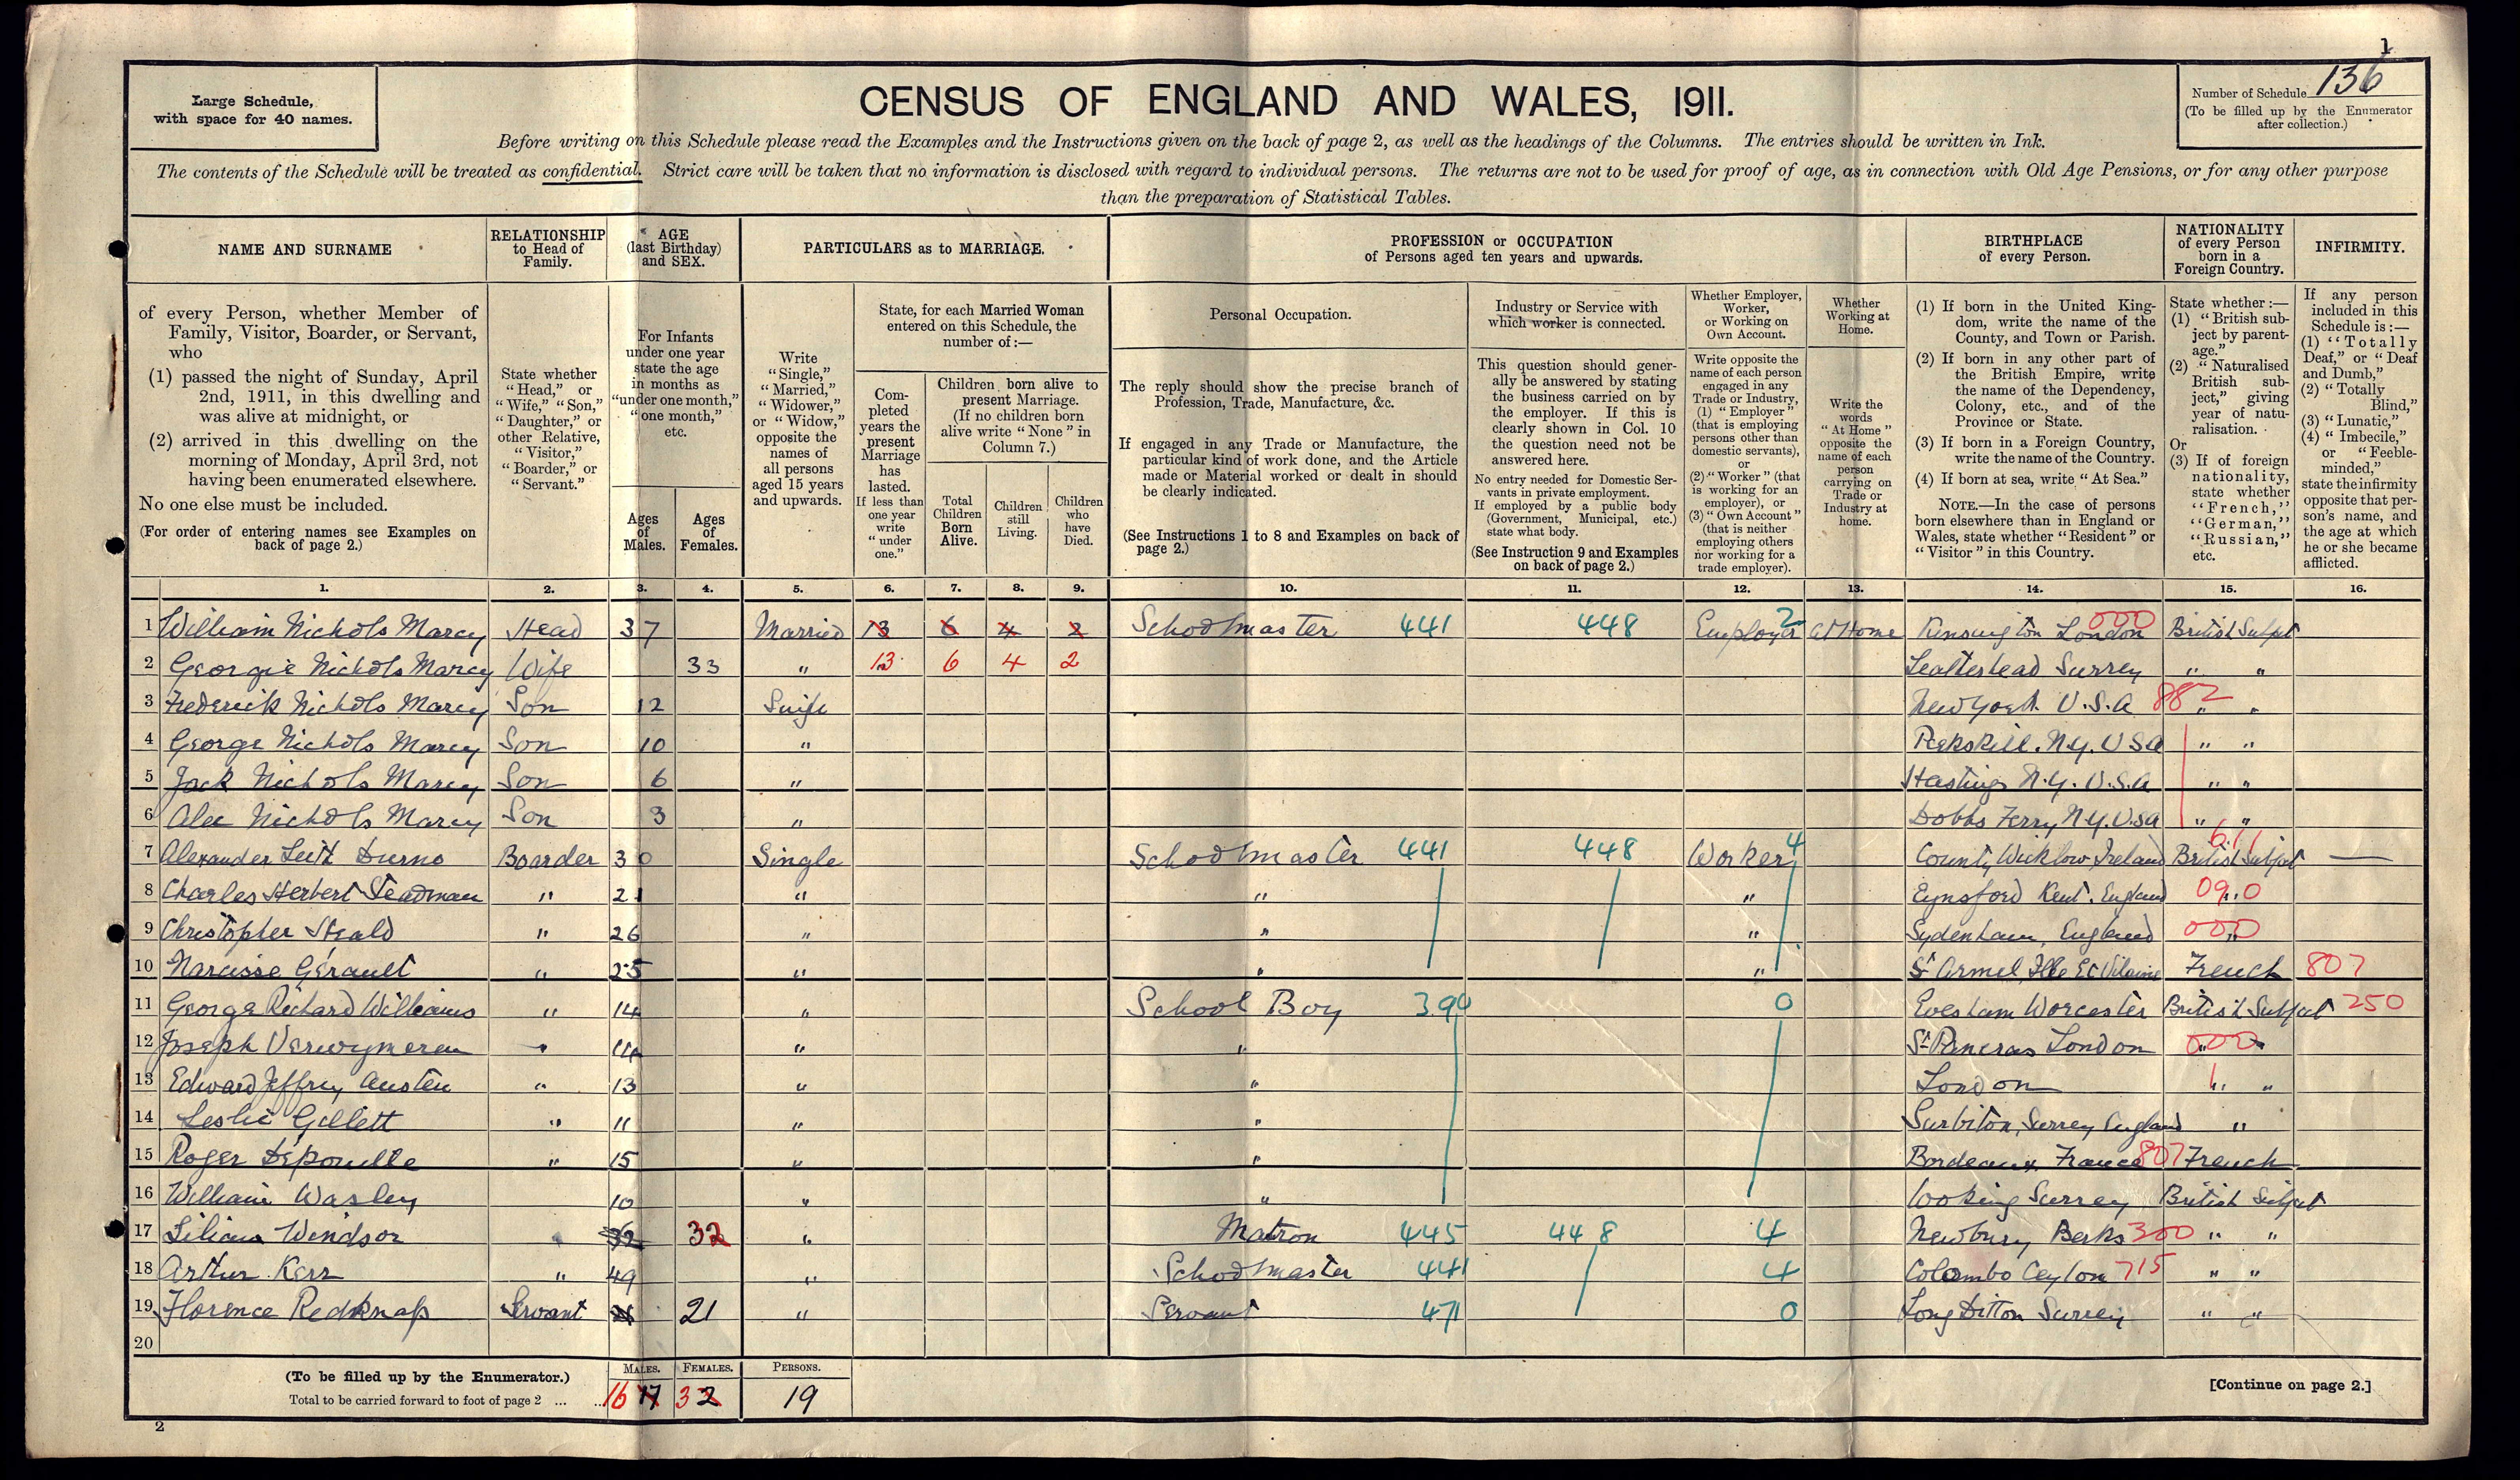 1
Large Schedule,
with space for 40 names.
CENSUS OF ENGLAND AND WALES, 1911.
Number of Schedule 136
(To be filled up by the Enumerator
after collection.)
Before writing on this Schedule please read the Examples and the Instructions given on the back of page 2, as well as the headings of the Columns. The entries should be written in Ink.
The contents of the Schedule will be treated as confidential. Strict care will be taken that no information is disclosed with regard to individual persons. The returns are not to be used for proof of age, as in connection with Old Age Pensions, or for any other purpose
than the preparation of Statistical Tables.
NAME AND SURNAME
of every Person, whether Member of
Family, Visitor, Boarder, or Servant,
who
(1) passed the night of Sunday, April
2nd, 1911, in this dwelling and
was alive at midnight, or
(2) arrived in this dwelling on the
morning of Monday, April 3rd, not
having been enumerated elsewhere.
No one else must be included.
(For order of entering names see Examples on
back of page 2.)
RELATIONSHIP
to Head of
Family.
State whether
"Head," or
"Wife," "Son,"
"Daughter," or
other Relative,
"Visitor,"
"Boarder," or
"Servant."
AGE
(last Birthday)
and SEX.
For Infants
under one year
state the age
in months as
"under one month,"
"one month,"
etc.
Ages
of
Males.
Ages
of
Females.
PARTICULARS as to MARRIAGE.
Write
"Single,"
"Married,"
"Widower,"
or "Widow,"
opposite the
names of
all persons
aged 15 years
and upwards.
State, for each Married Woman
entered on this Schedule, the
number of:—
Com-
pleted
years the
present
Marriage
has
lasted.
If less than
one year
write
"under
one."
Children born alive to
present Marriage.
(If no children born
alive write "None" in
Column 7.)
Total
Children
Born
Alive.
Children
still
Living.
Children
who
have
Died.
PROFESSION or OCCUPATION
of Persons aged ten years and upwards.
Personal Occupation.
The reply should show the precise branch of
Profession, Trade, Manufacture, &c.
If engaged in any Trade or Manufacture, the
particular kind of work done, and the Article
made or Material worked or dealt in should
be clearly indicated.
(See Instructions 1 to 8 and Examples on back of
page 2.)
Industry or Service with
which worker is connected.
This question should gener-
ally be answered by stating
the business carried on by
the employer. If this is
clearly shown in Col. 10
the question need not be
answered here.
No entry needed for Domestic Ser-
vants in private employment.
If employed by a public body
(Government, Municipal, etc.)
state what body.
(See Instruction 9 and Examples
on back of page 2.)
Whether Employer,
Worker,
or Working on
Own Account.
Write opposite the
name of each person
engaged in any
Trade or Industry,
(1) "Employer"
(that is employing
persons other than
domestic servants),
or
(2) "Worker" (that
is working for an
employer), or
(3) "Own Account"
(that is neither
employing others
nor working for a
trade employer).
Whether
Working at
Home.
Write the
words
"At Home"
opposite the
name of each
person
carrying on
Trade or
Industry at
home.
BIRTHPLACE
of every Person.
(1) If born in the United King-
dom, write the name of the
County, and Town or Parish.
(2) If born in any other part of
the British Empire, write
the name of the Dependency,
Colony, etc., and of the
Province or State.
(3) If born in a Foreign Country,
write the name of the Country.
(4) If born at sea, write "At Sea."
NOTE.—In the case of persons
born elsewhere than in England or
Wales, state whether "Resident" or
"Visitor" in this Country.
NATIONALITY
of every Person
born in a
Foreign Country.
State whether:—
(1) "British sub-
ject by parent-
age."
(2) "Naturalised
British sub-
ject," giving
year of natu-
ralisation.
Or
(3) If of foreign
nationality,
state whether
"French,"
"German,"
"Russian,"
etc.
INFIRMITY.
If any person
included in this
Schedule is:—
(1) "Totally
Deaf," or "Deaf
and Dumb,"
(2) "Totally
Blind,"
(3) "Lunatic,"
(4) "Imbecile,"
or "Feeble-
minded,"
state the infirmity
opposite that per-
son's name, and
the age at which
he or she became
afflicted.
1. 2. 3. 4. 5. 6. 7. 8. 9. 10. 11. 12. 13. 14. 15. 16.
1 William Nichols Marcy Head 37 Married 13 6 4 2 Schoolmaster 441 448 Employer 2 At Home Kensington London 000 British Subject
2 Georgie Nichols Marcy Wife 33 " 13 6 4 2 Leatherhead Surrey " "
3 Frederick Nichols Marcy Son 12 Single New York U.S.A 882 " "
4 George Nichols Marcy Son 10 " Peekskill. N.Y. U S A " "
5 Jack Nichols Marcy Son 6 " Hastings N.Y. U.S.A " "
6 Alec Nichols Marcy Son 3 " Dobbs Ferry N.Y. U.S.A " "
7 Alexander Leith Durno Boarder 30 Single Schoolmaster 441 448 Worker 4 County Wicklow, Ireland 611 British Subject —
8 Charles Herbert Steadman " 21 " " " Eynsford Kent. England 090 "
9 Christopher Heald " 26 " " " Sydenham, England 000 "
10 Narcisse Gérault " 25 " " " St Armel, Ille Et Vilaine French 807
11 George Richard Williams " 14 " School Boy 390 0 Evesham Worcester British Subject 250
12 Joseph Verwymeren " 14 " " St Pancras London 000 "
13 Edward Jeffrey Austen " 13 " " London " "
14 Leslie Gillett " 11 " " Surbiton, Surrey England "
15 Roger " 15 " " Bordeaux France 807 French
16 William Wasley 10 " " Woking Surrey British Subject
17 Lilian Windsor " 32 32 " Matron 445 448 4 Newbury Berks 300 " "
18 Arthur Kerr " 49 " Schoolmaster 441 4 Colombo Ceylon 715 " "
19 Florence Redknap Servant 21 21 " Servant 471 0 Long Ditton Surrey " "
20
(To be filled up by the Enumerator.)
Total to be carried forward to foot of page 2 ... ...
MALES. FEMALES. PERSONS.
16 17 3 2 19
[Continue on page 2.]
2